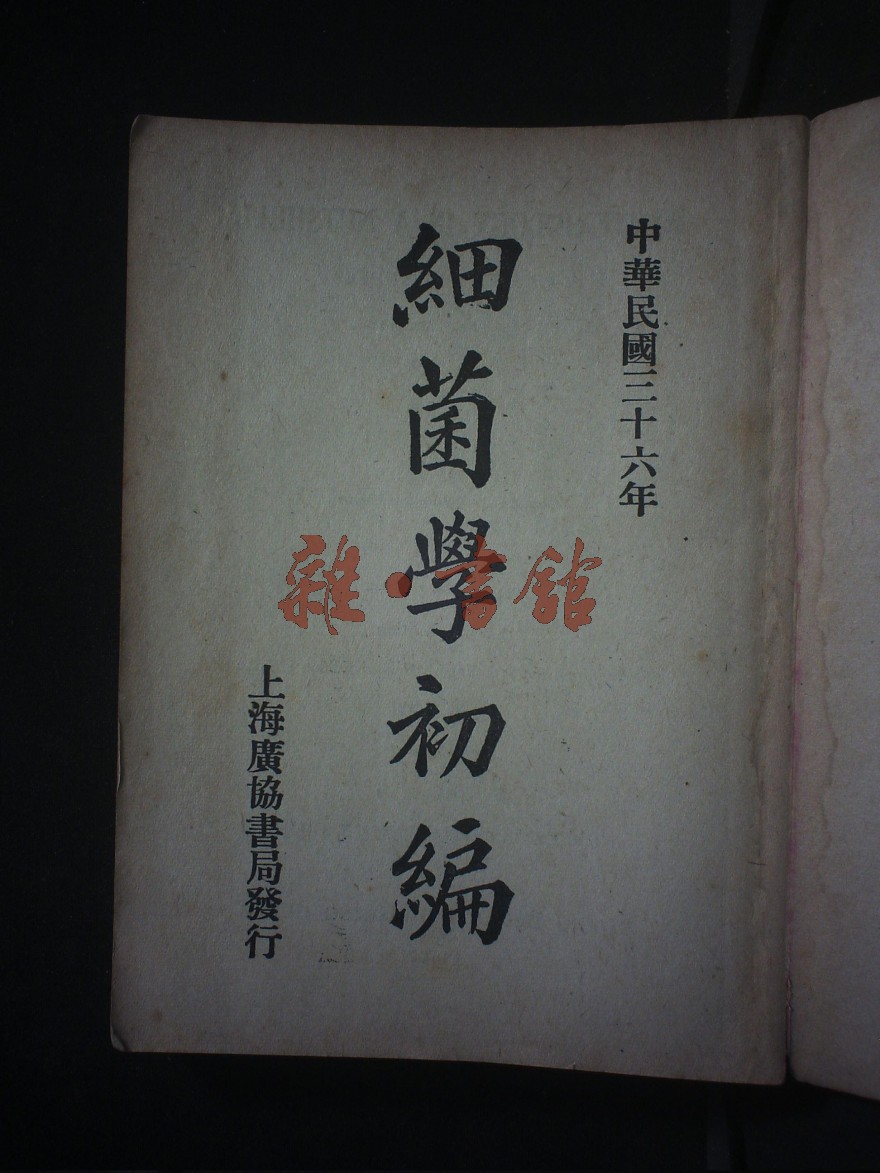 中華民國三十六年
細菌學初編
上海廣協書局發行
雜·書館